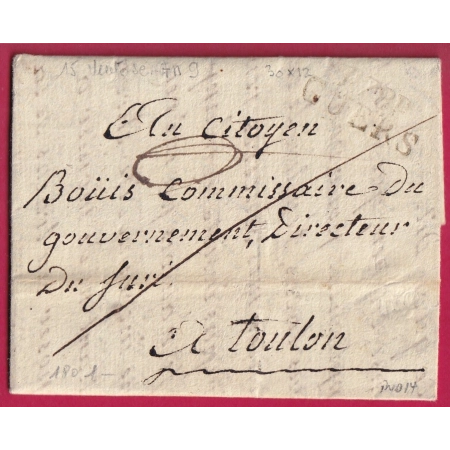 15 Ventose An 9
30x12
CUERS
Au Citoyen
Boüis Commissaire Du
gouvernement, Directeur
Du Juri
A Toulon
1801 -
IND14